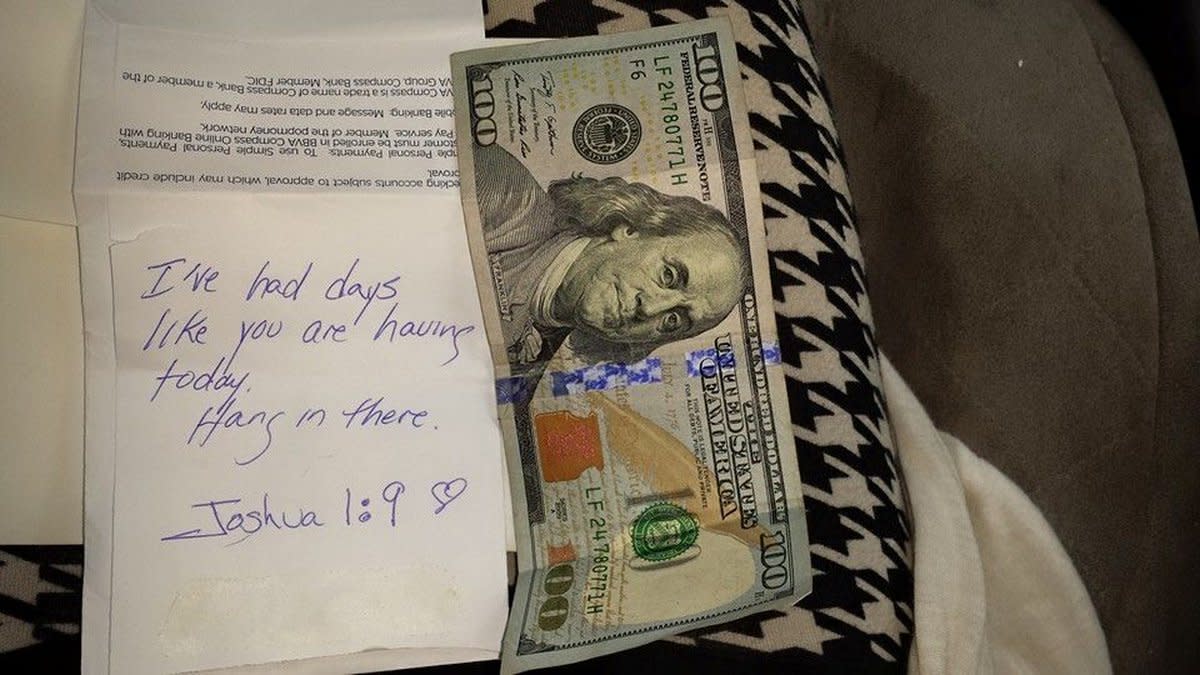 I've had days
like you are having
today.
Hang in there.
Joshua 1:9 ♡
ecking accounts subject to approval, which may include credit
roval.
mple Personal Payments: To use Simple Personal Payments,
stomer must be enrolled in BBVA Compass Online Banking with
Pay service. Member of the popmoney network.
bile Banking: Message and data rates may apply.
VA Compass is a trade name of Compass Bank, a member of the
VA Group. Compass Bank, Member FDIC.
100
FEDERAL RESERVE NOTE
LF 24780771 H
F6
100
FRANKLIN
THE UNITED STATES
OF AMERICA
THIS NOTE IS LEGAL TENDER
FOR ALL DEBTS, PUBLIC AND PRIVATE
LF 24780771 H
100
100